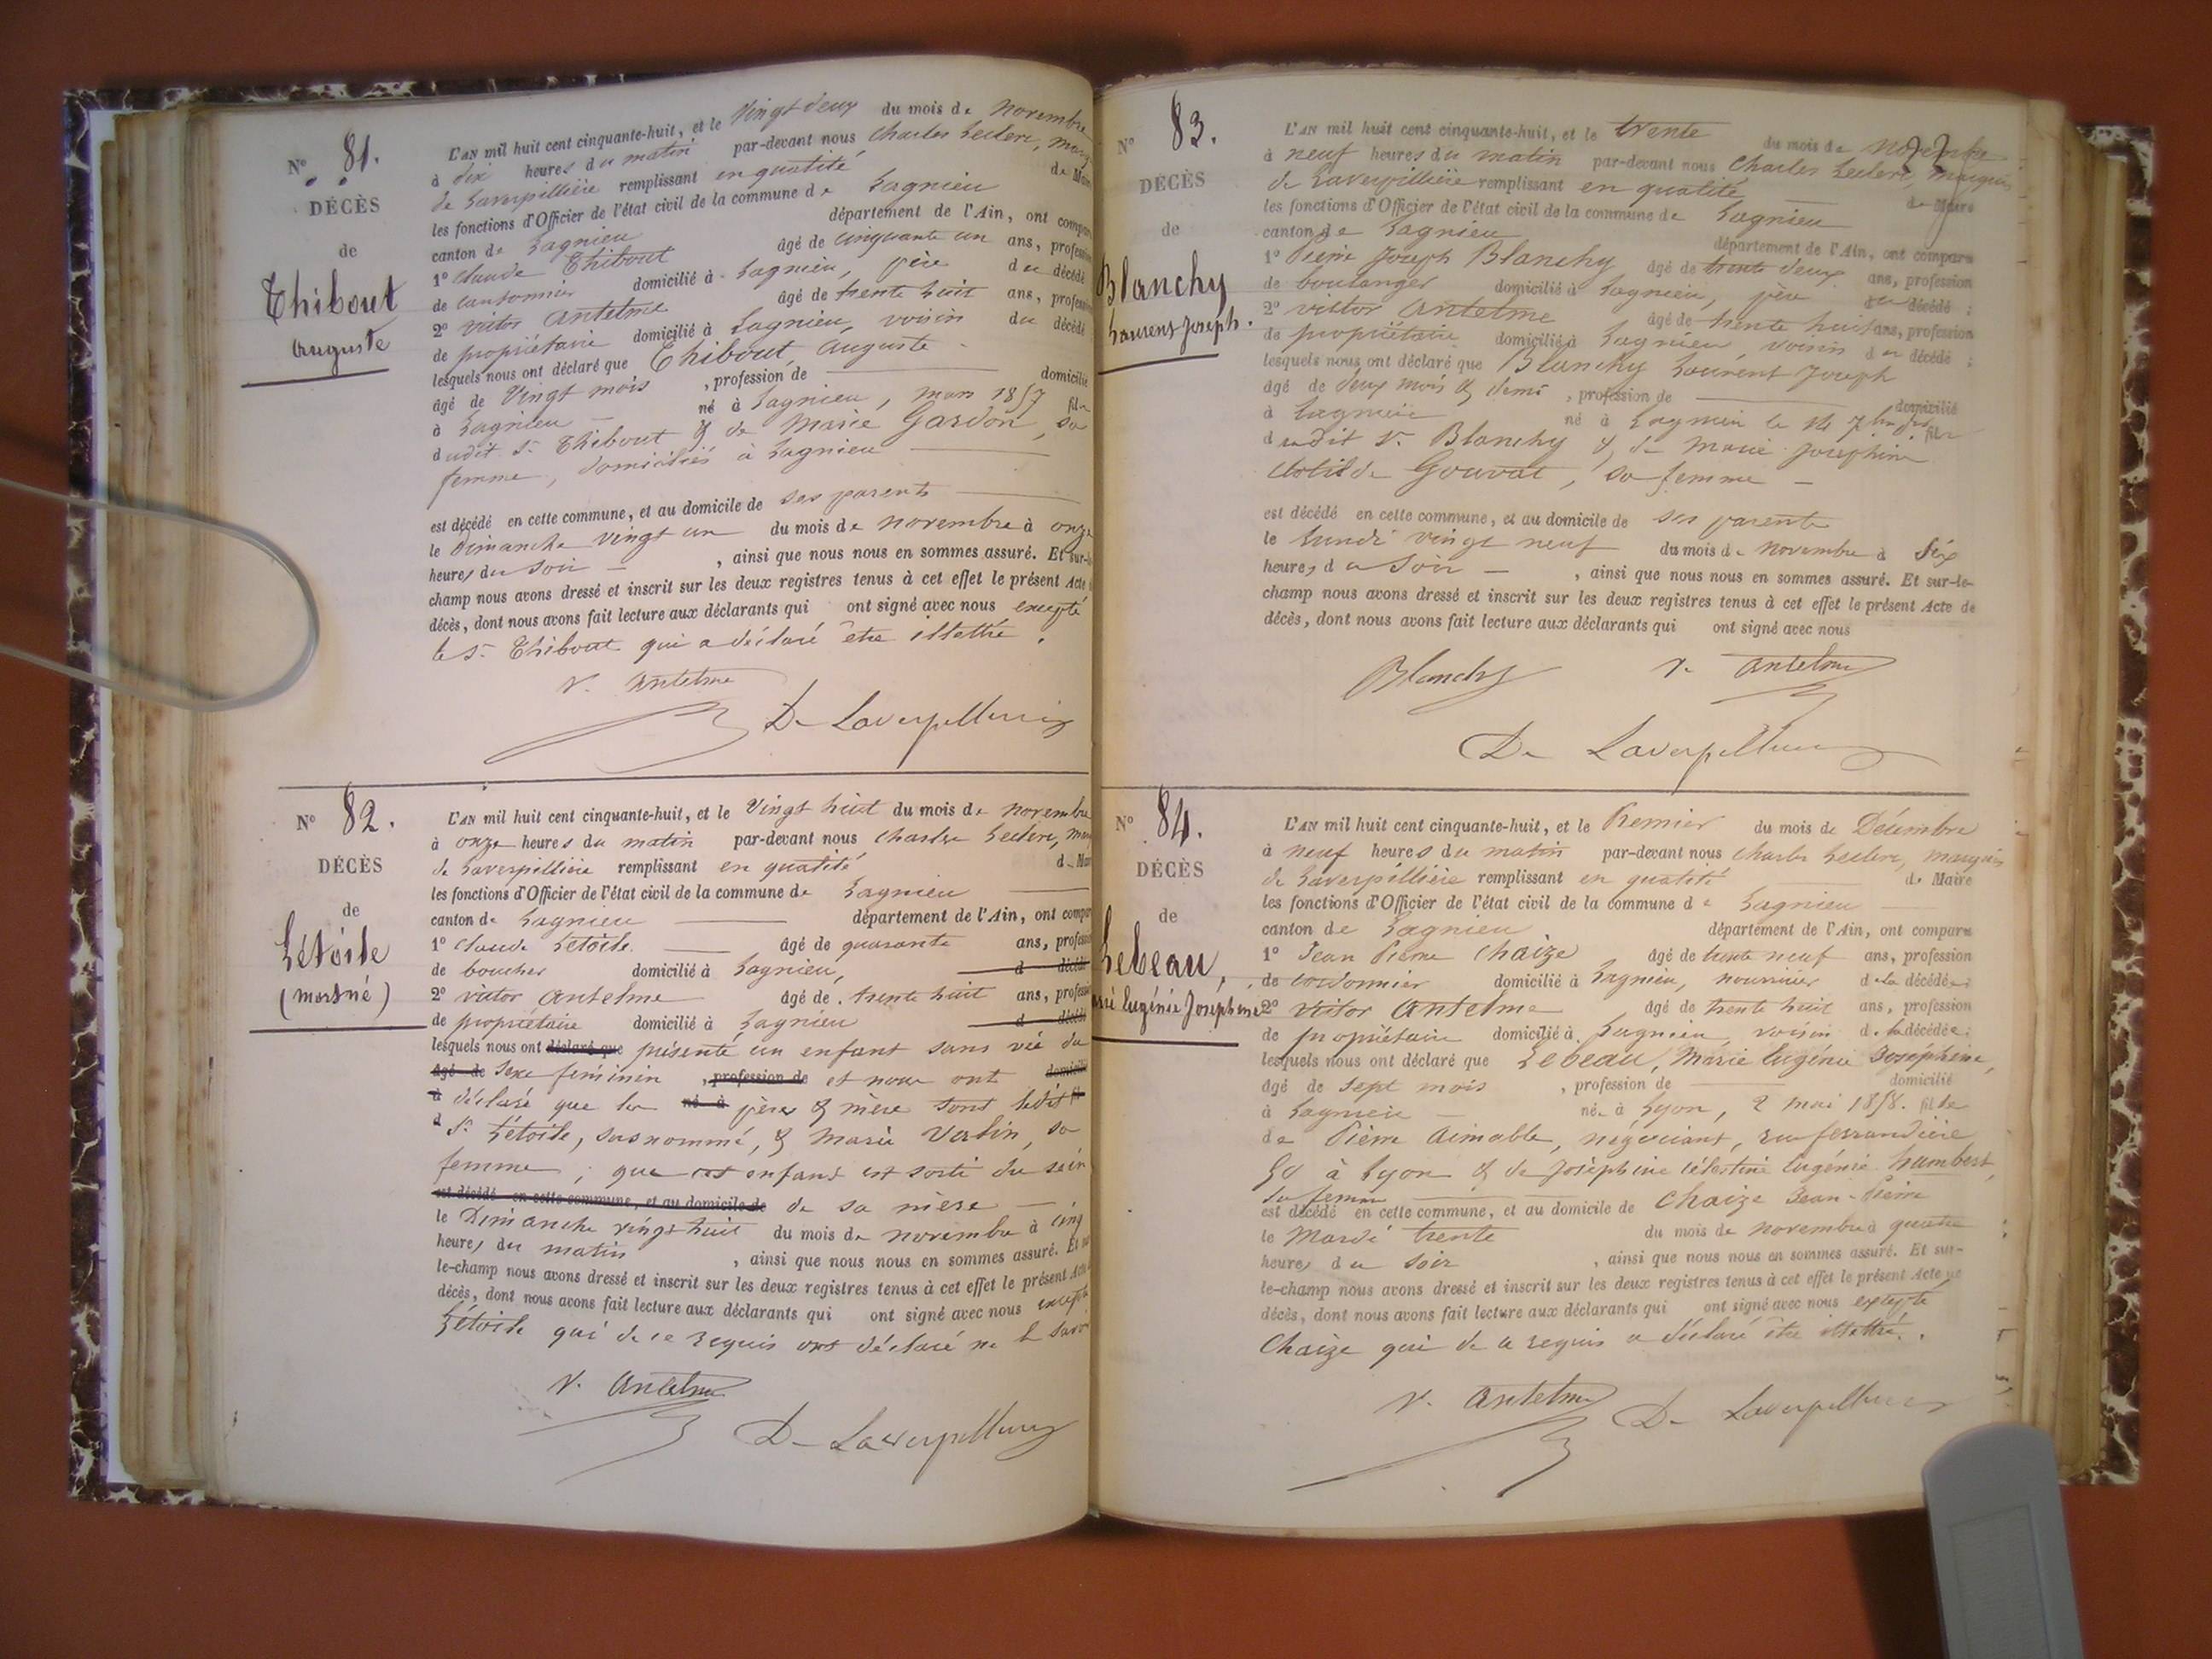 N° 81.
DÉCÈS
de
Thibout
Auguste
L'AN mil huit cent cinquante-huit, et le Vingt deux du mois de novembre
à dix heures du matin par-devant nous Charles Leclerc, marq
de Laverpillière remplissant en qualité de Maire
les fonctions d'Officier de l'état civil de la commune de Lagnieu
canton de Lagnieu département de l'Ain, ont comparu
1° Claude Thibout âgé de cinquante un ans, profession
de cantonnier domicilié à Lagnieu, père du décédé
2° victor Antelme âgé de trente huit ans, profession
de propriétaire domicilié à Lagnieu, voisin du décédé
lesquels nous ont déclaré que Thibout, Auguste
âgé de Vingt mois , profession de domicilié
à Lagnieu né à Lagnieu, mars 1857 fils
dudit Sr Thibout & de Marie Gardon, sa
femme, domiciliés à Lagnieu
est décédé en cette commune, et au domicile de ses parents
le Dimanche vingt un du mois de novembre à onze
heures du soir , ainsi que nous nous en sommes assuré. Et sur-le-
champ nous avons dressé et inscrit sur les deux registres tenus à cet effet le présent Acte
décès, dont nous avons fait lecture aux déclarants qui ont signé avec nous excepté
le Sr Thibout qui a déclaré être illettré.
V. Antelme
De Laverpilliere
N° 82.
DÉCÈS
de
Létoile
(mort né)
L'AN mil huit cent cinquante-huit, et le Vingt huit du mois de novembre
à onze heures du matin par-devant nous Charles Leclerc, marq
de Laverpillière remplissant en qualité de Maire
les fonctions d'Officier de l'état civil de la commune de Lagnieu
canton de Lagnieu département de l'Ain, ont comparu
1° Claude Létoile âgé de quarante ans, profession
de boucher domicilié à Lagnieu, d décédé
2° victor Antelme âgé de trente huit ans, profession
de propriétaire domicilié à Lagnieu d décédé
lesquels nous ont déclaré que présenté un enfant sans vie du
âgé de sexe feminin , profession de et nous ont domicilié
à déclaré que les né à père & mère sont ledit fil
d Sr Létoile, susnommé, & Marie Verlin, sa
femme ; que cet enfant est sorti du sein
est décédé en cette commune, et au domicile de de sa mère
le Dimanche vingt huit du mois de novembre à cinq
heures du matin , ainsi que nous nous en sommes assuré. Et sur
le-champ nous avons dressé et inscrit sur les deux registres tenus à cet effet le présent Acte
décès, dont nous avons fait lecture aux déclarants qui ont signé avec nous excepté
Létoile qui de ce requis ont déclaré ne le savoir
V. Antelme
De Laverpilliere
N° 83.
DÉCÈS
de
Blanchy
Laurent Joseph.
L'AN mil huit cent cinquante-huit, et le trente du mois de novembre
à neuf heures du matin par-devant nous Charles Leclerc, marquis
de Laverpillière remplissant en qualité de Maire
les fonctions d'Officier de l'état civil de la commune de Lagnieu
canton de Lagnieu département de l'Ain, ont comparu
1° Pierre Joseph Blanchy âgé de trente deux ans, profession
de boulanger domicilié à Lagnieu, père du décédé ;
2° victor Antelme âgé de trente huit ans, profession
de propriétaire domicilié à Lagnieu, voisin du décédé ;
lesquels nous ont déclaré que Blanchy Laurent Joseph
âgé de deux mois & demi , profession de domicilié
à Lagnieu né à Lagnieu le 14 7bre fils
dudit Sr Blanchy & de Marie Joséphine
Clotilde Gouvat, sa femme
est décédé en cette commune, et au domicile de ses parents
le Lundi vingt neuf du mois de novembre à Six
heures du Soir , ainsi que nous nous en sommes assuré. Et sur-le-
champ nous avons dressé et inscrit sur les deux registres tenus à cet effet le présent Acte de
décès, dont nous avons fait lecture aux déclarants qui ont signé avec nous
Blanchy V. Antelme
De Laverpilliere
N° 84.
DÉCÈS
de
Lebeau,
Marie Eugénie Josephine
L'AN mil huit cent cinquante-huit, et le Premier du mois de Décembre
à neuf heures du matin par-devant nous Charles Leclerc, marquis
de Laverpillière remplissant en qualité de Maire
les fonctions d'Officier de l'état civil de la commune de Lagnieu
canton de Lagnieu département de l'Ain, ont comparu
1° Jean Pierre Chaize âgé de trente neuf ans, profession
de cordonnier domicilié à Lagnieu, nourricier de la décédée ;
2° Victor Antelme âgé de trente huit ans, profession
de propriétaire domicilié à Lagnieu, voisin de la décédée ;
lesquels nous ont déclaré que Lebeau, Marie Eugénie Joséphine,
âgé de Sept mois , profession de domicilié
à Lagnieu née à Lyon, 2 mai 1858. fille
de Pierre Aimable, négociant, rue ferrandière
50 à Lyon & de Joséphine Célestine Eugénie humbert,
sa femme
est décédé en cette commune, et au domicile de Chaize Jean-Pierre
le Mardi trente du mois de novembre à quatre
heures du soir , ainsi que nous nous en sommes assuré. Et sur-
le-champ nous avons dressé et inscrit sur les deux registres tenus à cet effet le présent Acte de
décès, dont nous avons fait lecture aux déclarants qui ont signé avec nous excepté
Chaize qui de ce requis a déclaré être illettré.
V. Antelme De Laverpilliere